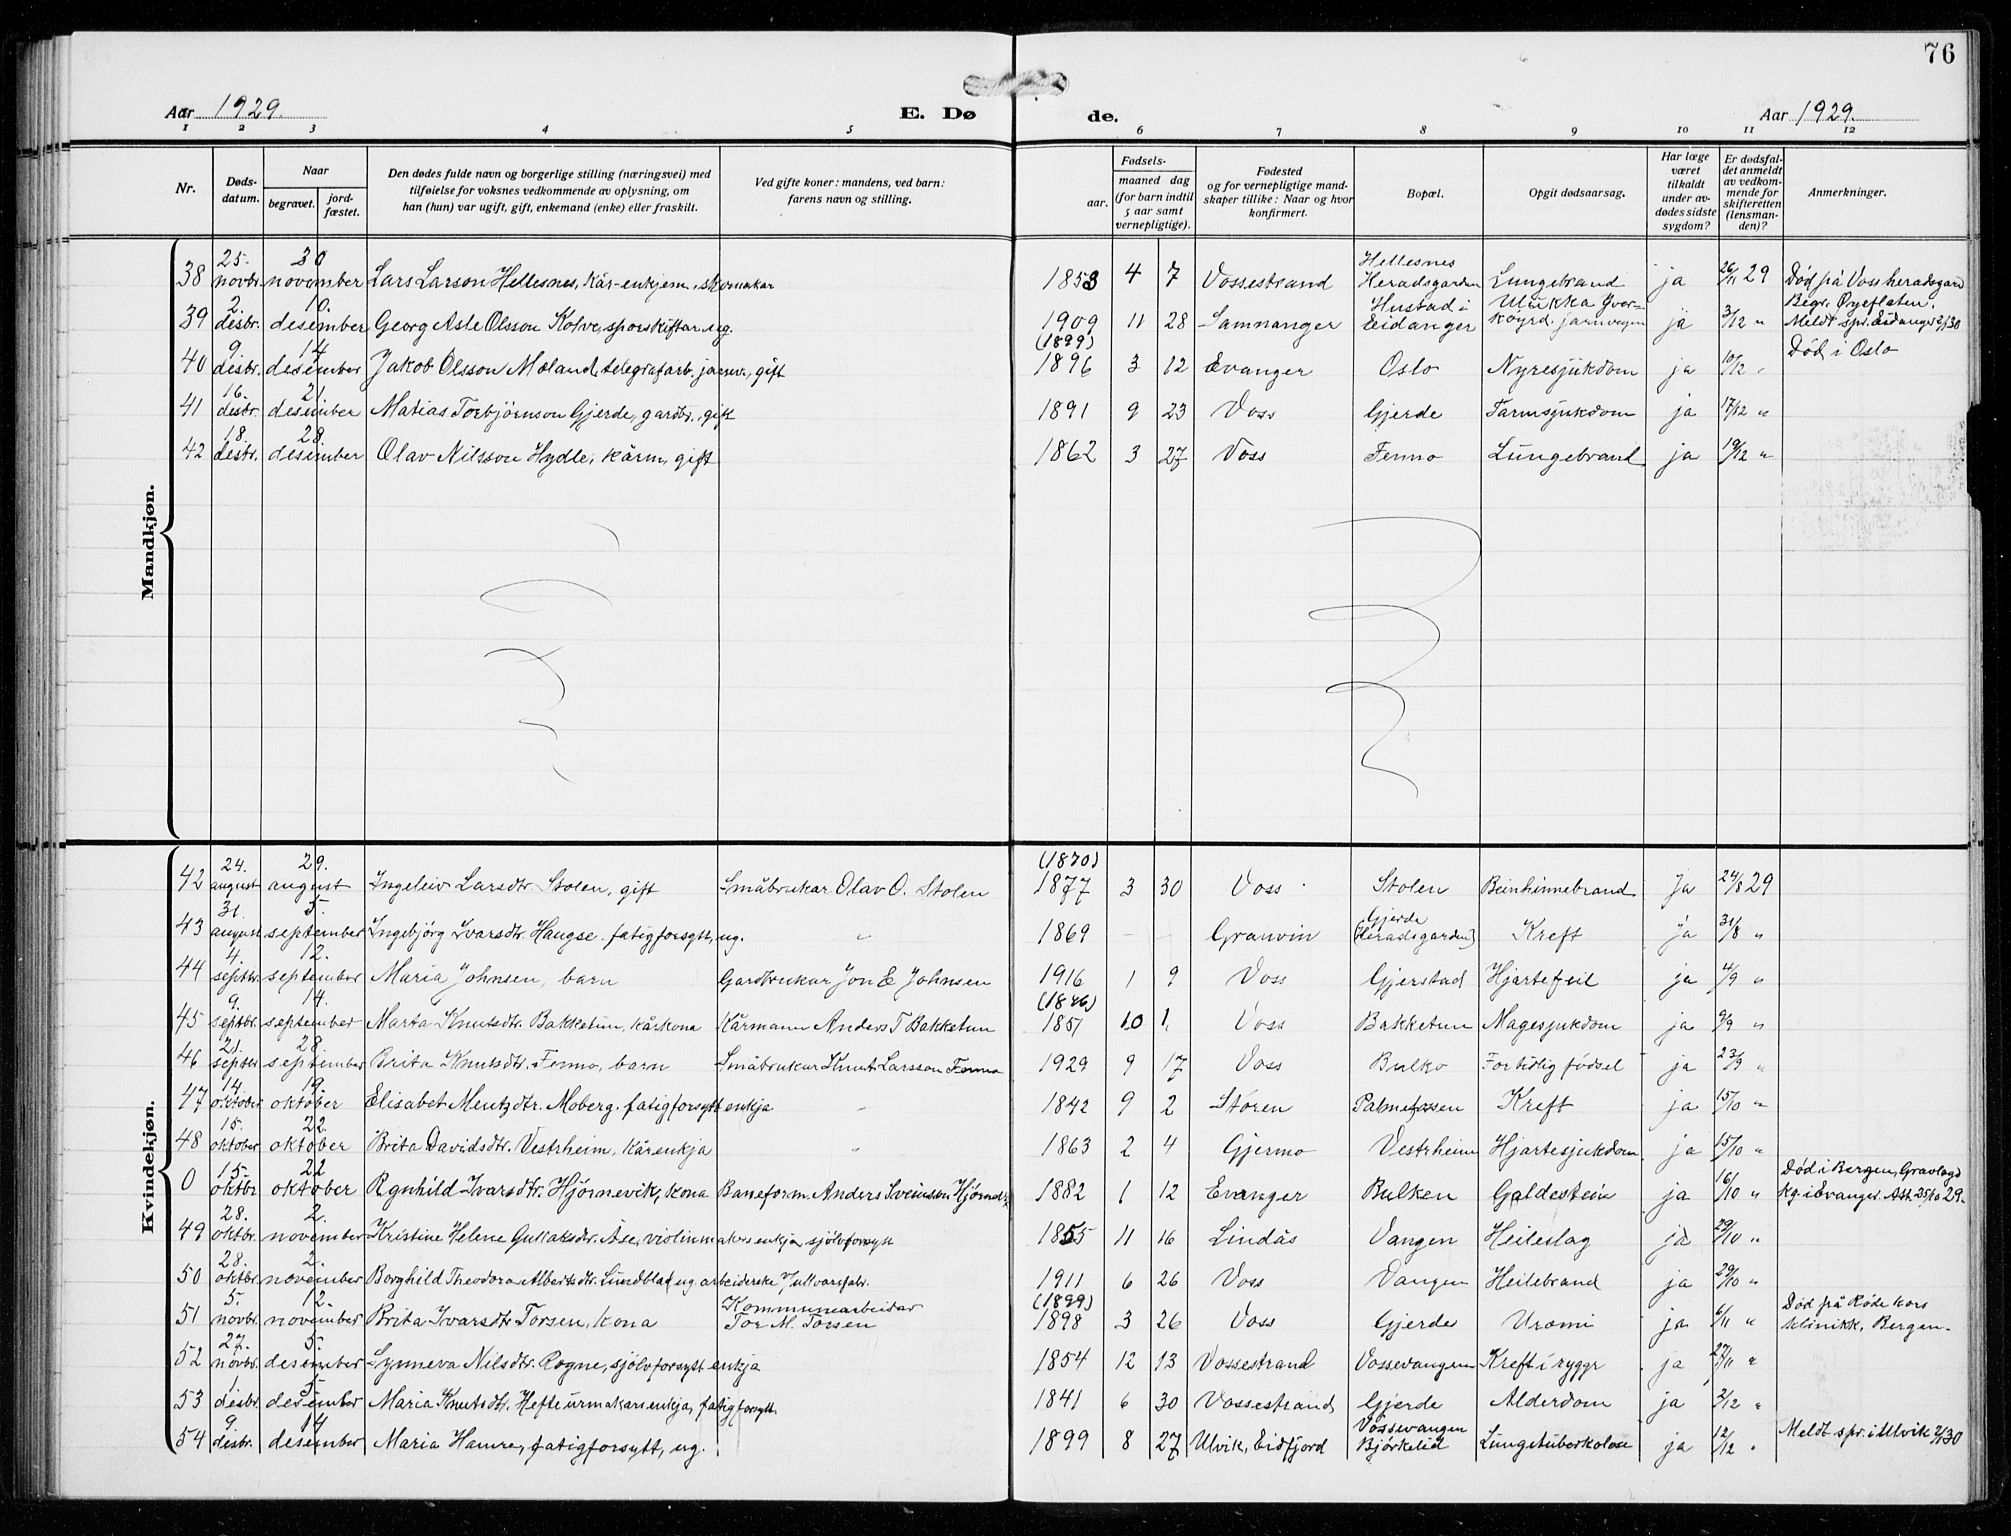 76
Aar 1929.
E. Dø
de.
Aar 1929.
1 2 3 4 5 6 7 8 9 10 11 12
Nr.
Døds-
datum.
Naar
begravet.
jord-
fæstet.
Den dødes fulde navn og borgerlige stilling (næringsvei) med
tilføielse for voksnes vedkommende av oplysning, om
han (hun) var ugift, gift, enkemand (enke) eller fraskilt.
Ved gifte koner: mandens, ved barn:
farens navn og stilling.
Fødsels-
aar.
maaned dag
(for barn indtil
5 aar samt
vernepligtige).
Fødested
og for vernepligtige mand-
skaper tillike: Naar og hvor
konfirmert.
Bopæl.
Opgit dødsaarsag.
Har læge
været
tilkaldt
under av-
dødes sidste
sygdom?
Er dødsfal-
det anmeldt
av vedkom-
mende for
skifteretten
(lensman-
den)?
Anmerkninger.
Mandkjøn.
38 25. novbr. 30 november Lars Larson Hellesnes, kår-enkjem. skomakar 1853 4 7 Vossestrand Hellesnes Heradsgarden Lungebrand ja 26/11 29 Død på Voss heradsgard
39 2. desbr. 10. desember Georg Asle Olsson Kolve, sporskiftar, ug. 1909 11 28 Samnanger Hustad i Eidanger Ulukka yver-køyrd. jarnvegen ja 3/12 " Begr. Øyeflaten. Meldt spr. Eidanger 2/1 30
40 9. desbr. 14. desember Jakob Olsson Mæland, telegrafarb. jarnv., gift (1899) 1896 3 12 Evanger Oslo Nyresjukdom ja 10/12 " Død i Oslo
41 16. desbr. 21. desember Matias Torbjørnson Gjerde, gardbr., gift 1891 9 23 Voss Gjerde Tarmsjukdom ja 17/12 "
42 18. desbr. 28. desember Olav Nilsson Hydle, kårm., gift 1862 3 27 Voss Fenno Lungebrand ja 19/12 "
Kvindekjøn.
42 24. august 29. august Ingeleiv Larsdtr. Stolen, gift Småbrukar Olav O. Stolen (1870) 1877 3 30 Voss Stolen Beinhinnebrand Ja 24/8 29
43 31. august 5. september Ingebjørg Ivarsdtr. Haugse. fatigforsytt, ug. " 1869 — — Granvin Gjerde (Heradsgarden) Kreft ja 31/8 "
44 4. septbr. 12. september Maria Johnsen, barn Gardbrukar Jon E Johnsen 1916 1 9 Voss Gjerstad Hjartefeil ja 4/9 "
45 9. septbr. 14. september Marta Knutsdtr. Bakketun, kårkona Kårmann Anders T Bakketun (1846) 1851 10 1. Voss Bakketun Magesjukdom ja 9/9 "
46 21. septbr. 28. september Brita Knutsdtr. Fenno, barn Småbrukar Knut Larsson Fenno 1929 9 17 Voss Bulko For tidlig fødsel ja 23/9 "
47 14. oktober 19. oktober Elisabet Mentzdtr. Moberg. fatigforsytt enkja " 1842 9 2 Støren Palmefossen Kreft ja 15/10 "
48 15. oktober 22. oktober Brita Davidsdtr. Vestrheim, kårenkja " 1863 2 4 Gjermo Vestrheim Hjartesjukdom ja 15/10 "
0 15. oktbr 22 oktober Rgnhild Ivarsdtr. Hjørnevik, kona Baneform. Anders Sveinsson Hjørnevik 1882 1 12 Evanger Bulken Galdestein ja 16/10 " Død i Bergen, Gravlagd kg. i Evanger. Att. 25/10 29.
49 28. oktbr. 2. november Kristine Helene Gullaksdtr. Åse, violinmakers enkja, sjølvforsytt 1855 11 16 Lindås Vangen Heileslag ja 29/10 "
50 28. oktbr. 2. november Borghild Theodora Albertsdtr. Lundblad, ug. arbeiderske Jullvarefabr. 1911 6 26 Voss Vangen Heilebrand ja 29/10 "
51 5. novbr. 12. november Brita Ivarsdtr. Torsen, kona Kommunearbeidar Tor M. Torsen (1899) 1898 3 26 Voss Gjerde Uræmi ja 6/11 " Død på Røde kors klinikk, Bergen.
52 27. novbr. 5. desember Synneva Nilsdtr. Rogne, sjølvforsytt enkja 1854 12 13 Vossestrand Vossevangen Kreft i ryggr ja 27/11 "
53 1. desbr. 5. desember Maria Knutsdtr. Hefte urmakarenkja, fatigforsytt. 1841 6 30 Vossestrand Gjerde Alderdom ja 2/12 "
54 9. desbr. 14 desember Maria Hamre, fatigforsytt, ug. 1899 8 27 Ulvik, Eidfjord Vossevangen Bjørkelid Lungetuberkolose ja 12/12 " Meldt spr. i Ulvik 2/1 30